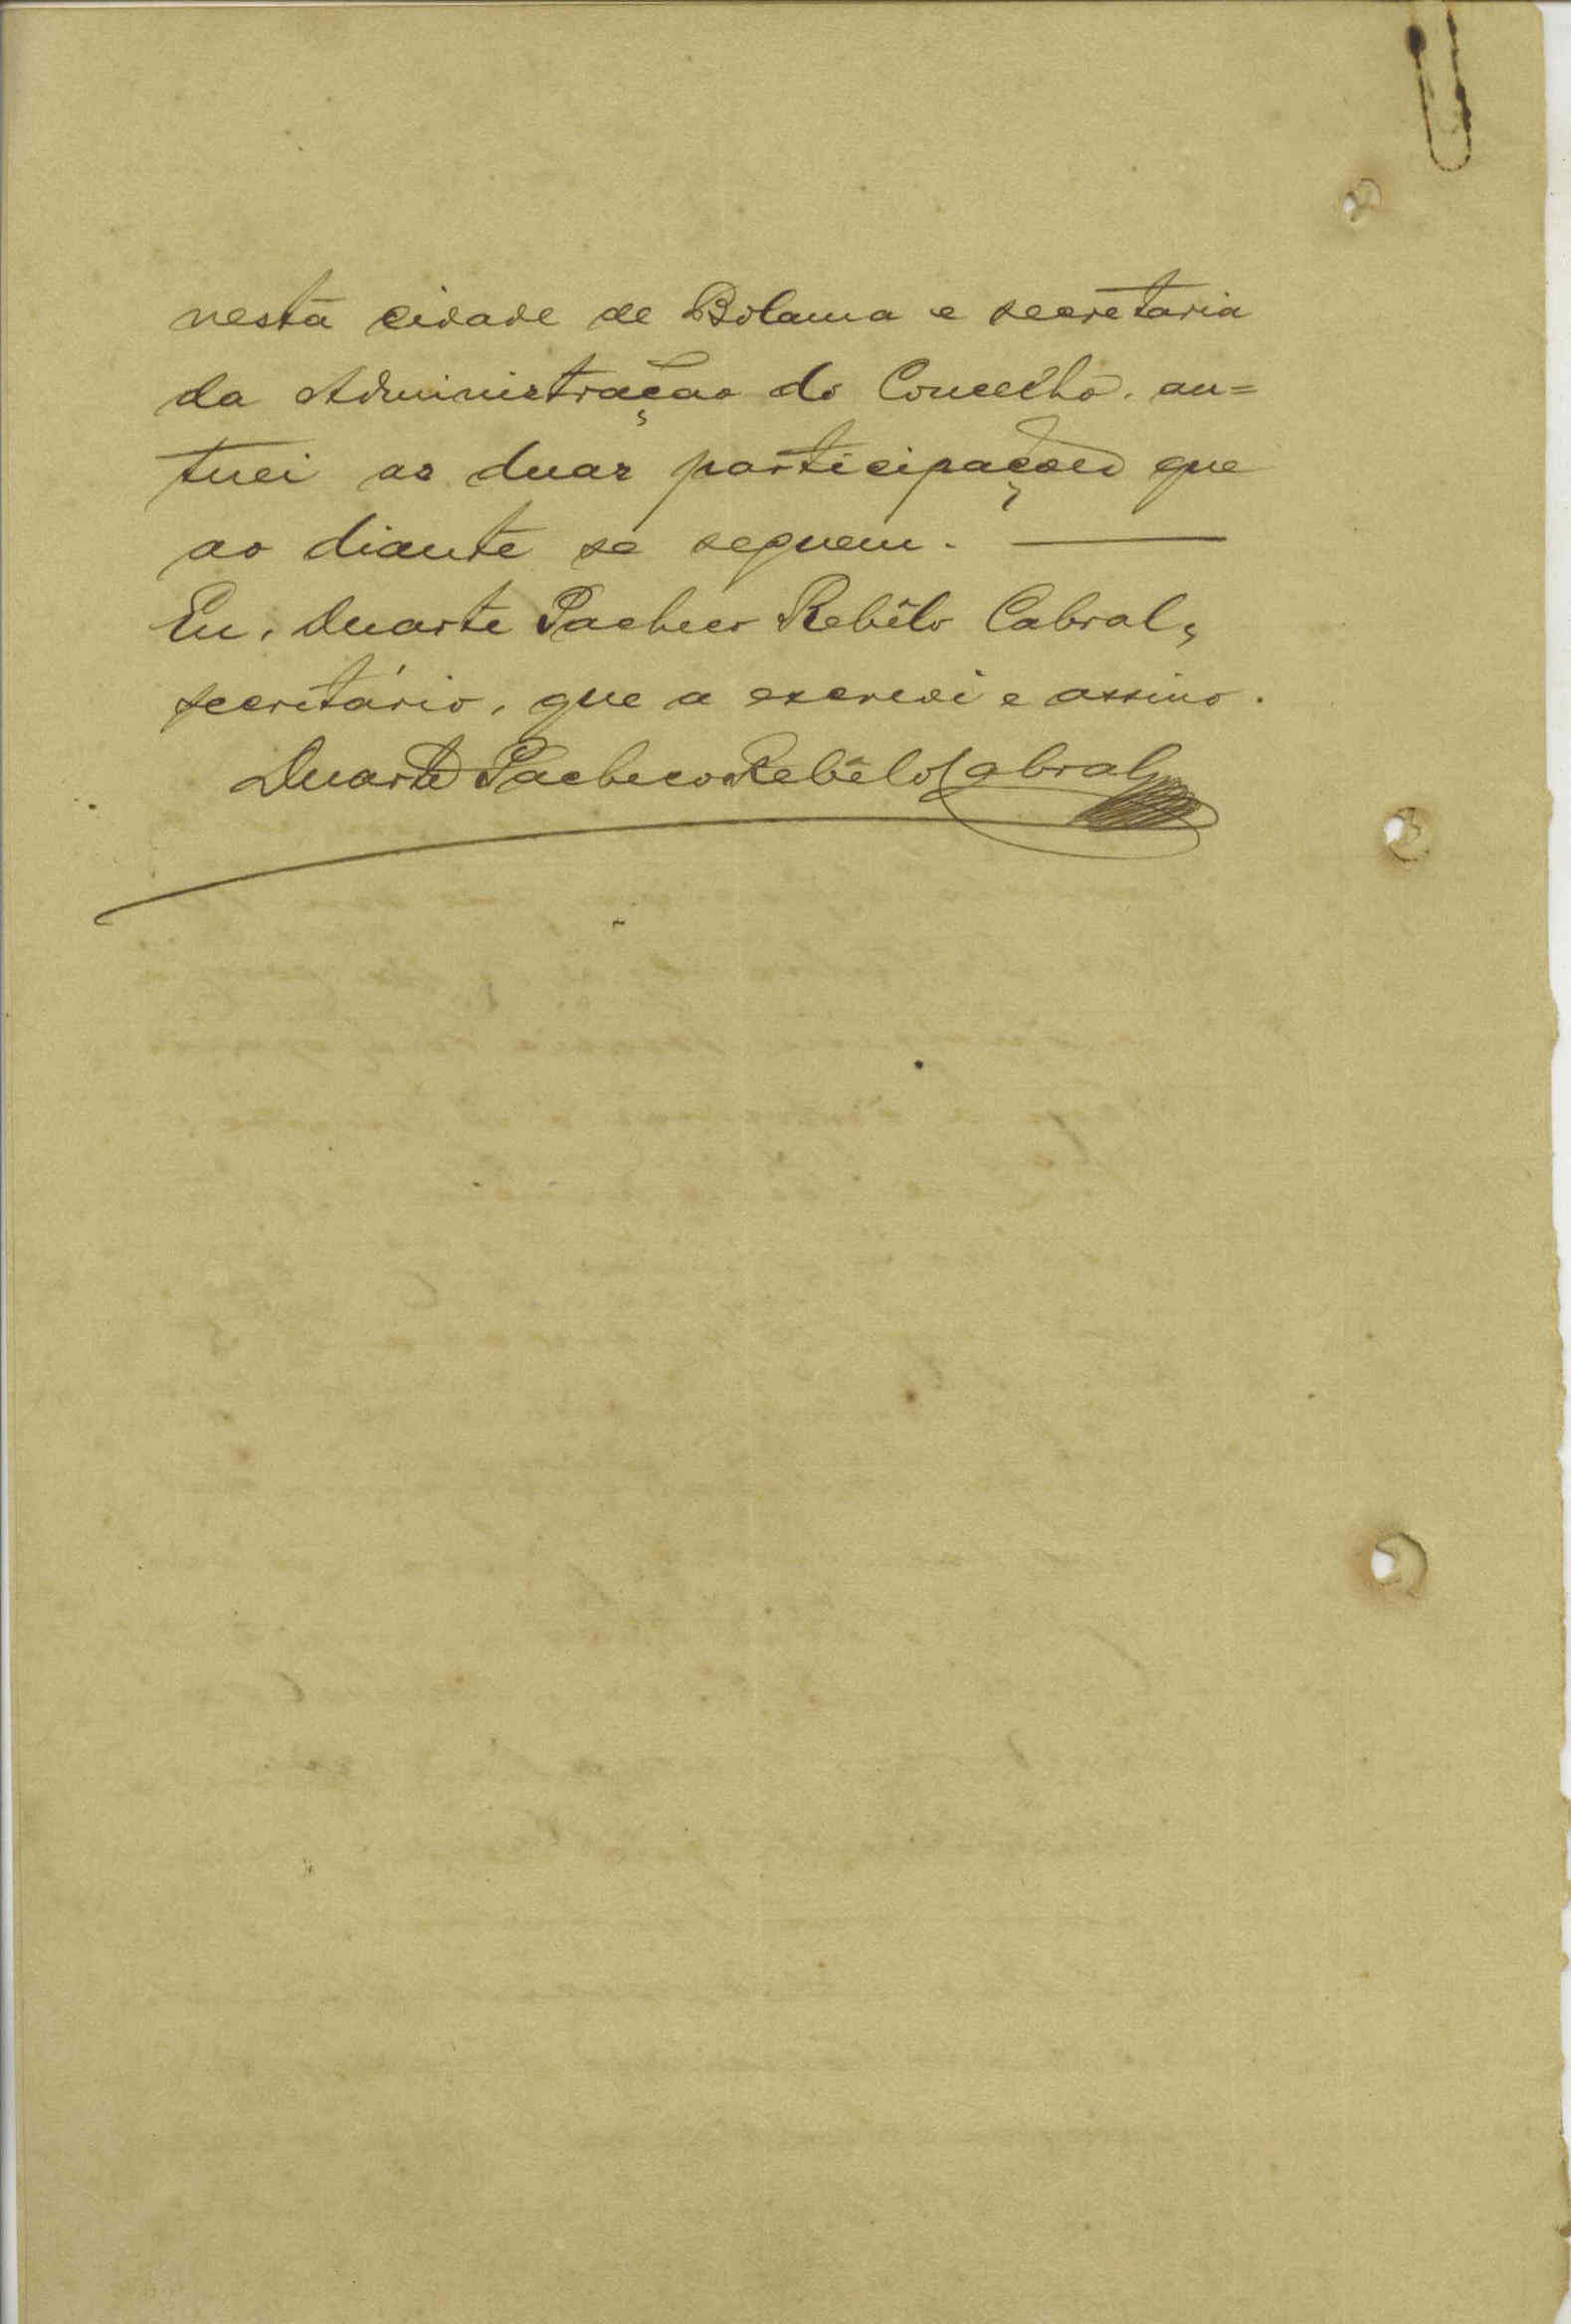 nesta cidade de Bolama e secretaria
da Administração do Concelho, au=
tuei as duas participações que
ao diante se seguem. ———
Eu, Duarte Pacheco Rebêlo Cabral,
secretário, que a escrevi e assino.
Duarte Pacheco Rebêlo Cabral